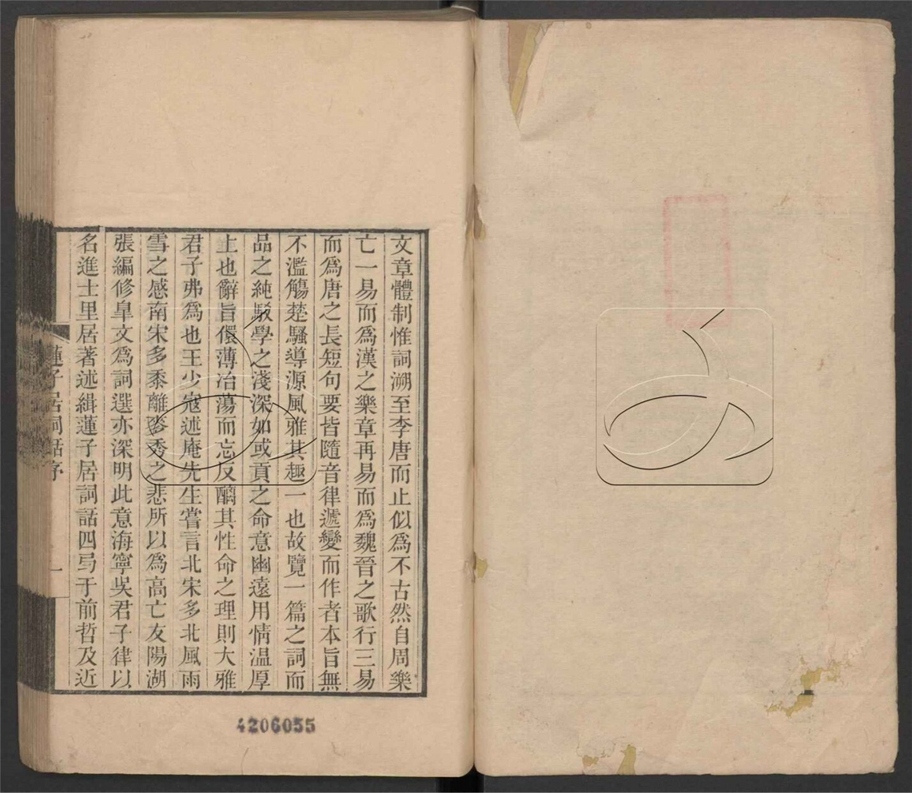 文章體制惟詞溯至李唐而止似為不古然自周樂
亡一易而為漢之樂章再易而為魏晉之歌行三易
而為唐之長短句要皆隨音律遞變而作者本旨無
不濫觴楚騷導源風雅其趣一也故覽一篇之詞而
品之純駁學之淺深如或貢之命意幽遠用情溫厚
上也辭旨儇薄冶蕩而忘反醨其性命之理則大雅
君子弗為也王少寇述庵先生嘗言北宋多北風雨
雪之感南宋多黍離麥秀之悲所以為高亡友陽湖
張編修皐文為詞選亦深明此意海寧吳君子律以
名進士里居著述緝蓮子居詞話四弓于前哲及近
蓮子居詞話序
一
4206055